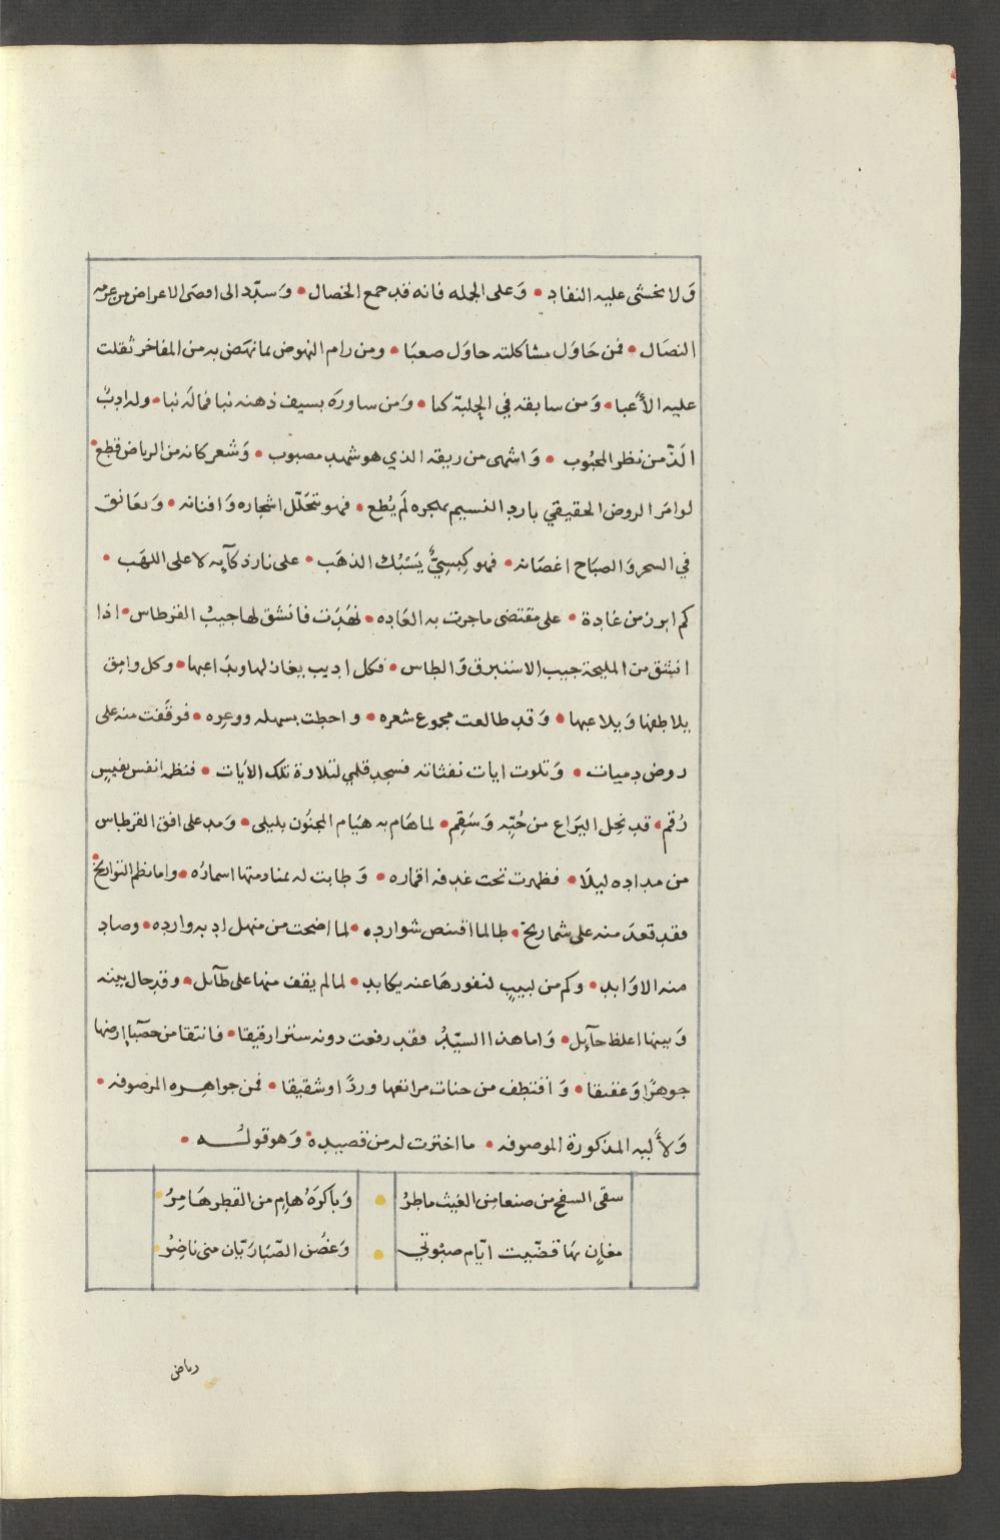 وَلا يخشى عليه النفاد • وَعلى الجمله فانه قد جمع الخصال • وَسدّد الى اقصى الاعراض من عزمه
النصَال • فمن حَاوَل مشاكلته حاوَل صعبًا • ومن رام النهوض بما نهَض به من المفاخر ثقلت
عليه الأَعبا • وَمن سابقه في الجلبة كبا • وَمن ساورَه بسيف ذهنه نبا فما لَه نبا • وله ادبٌ
الَذّ من نظر المحبُوب • وَاشهى من ريقه الذي هو شهد مصبوب • وَشعر كانه من الرياض قطع •
لوامَر الروض الحقيقي بارد النسيم بهجره لَم يُطع • فهو يتخَلّل اشجاره وَافنانه • وَيعَانق
في السحر وَالصبَاح اغصَانه • فهو كِبسِيٌّ يَسْبُك الذهَب • على نار ذكآيه لا على اللهَب •
كم ابرز من غَادة • على مقتضى ما جرت به العَاده • نهَدَت فانشق لها جيبُ القرطاس • اذا
انشق من المليحة جيب الاستبرق وَالطاس • فكل اديب يغازلها ويدَاعبها • وكل وامِق
يلاطفها وَيلاعبها • وَقد طالعت مجموع شعره • واحطت بسهله ووعِره • فوقَفت منه على
روض دميات • وَتلوت ايات نفثاته فسجد قلبي لتلاوة تلك الأيات • فنظمه انفس نفيسٍ
رُقم • قد نحِل اليرَاع من حُبّه وَسَقِم • لما هَام به هيَام المجنُون بليلى • وَمد على افق القرطاس
من مداده ليلًا • فظهرت تحت غدفه اقماره • وَطابت له بمنادمتها اسمارُه • واما نظم التواريخ •
فقد قعدَ منه على شماريخ • طالما اقتنص شوارده • لما اضحت من منهل ادبه وارده • وصاد
منه الاوَابد • وكم من لبيبٍ لنفورهَا عنه يكابد • لما لم يقف منها على طآئل • وقد حال بينه
وَبينها اغلظ حآيِل • وَاما هذا السيّدُ فقد رفعت دونه سترا رقيقا • فانتقا من حصبَآ ارضها
جوهرًا وَعقيقا • وَاقتطف من جنات مراتعها وردًا وشقيقا • فمن جواهره المرصوفه •
وَلأَلَيه المذكورة الموصوفه • ما اخترت له من قصيدة وَهو قولُه •
سقى السفح من صنعا مِن الغيث ماطرُ • وَباكرَهُ هامٍ من القطر هَامِرُ •
مغانٍ بهَا قضّيت ايّام صبْوتي • وَغصن الصّبَا رَيّان مني ناضِرُ •
رياض